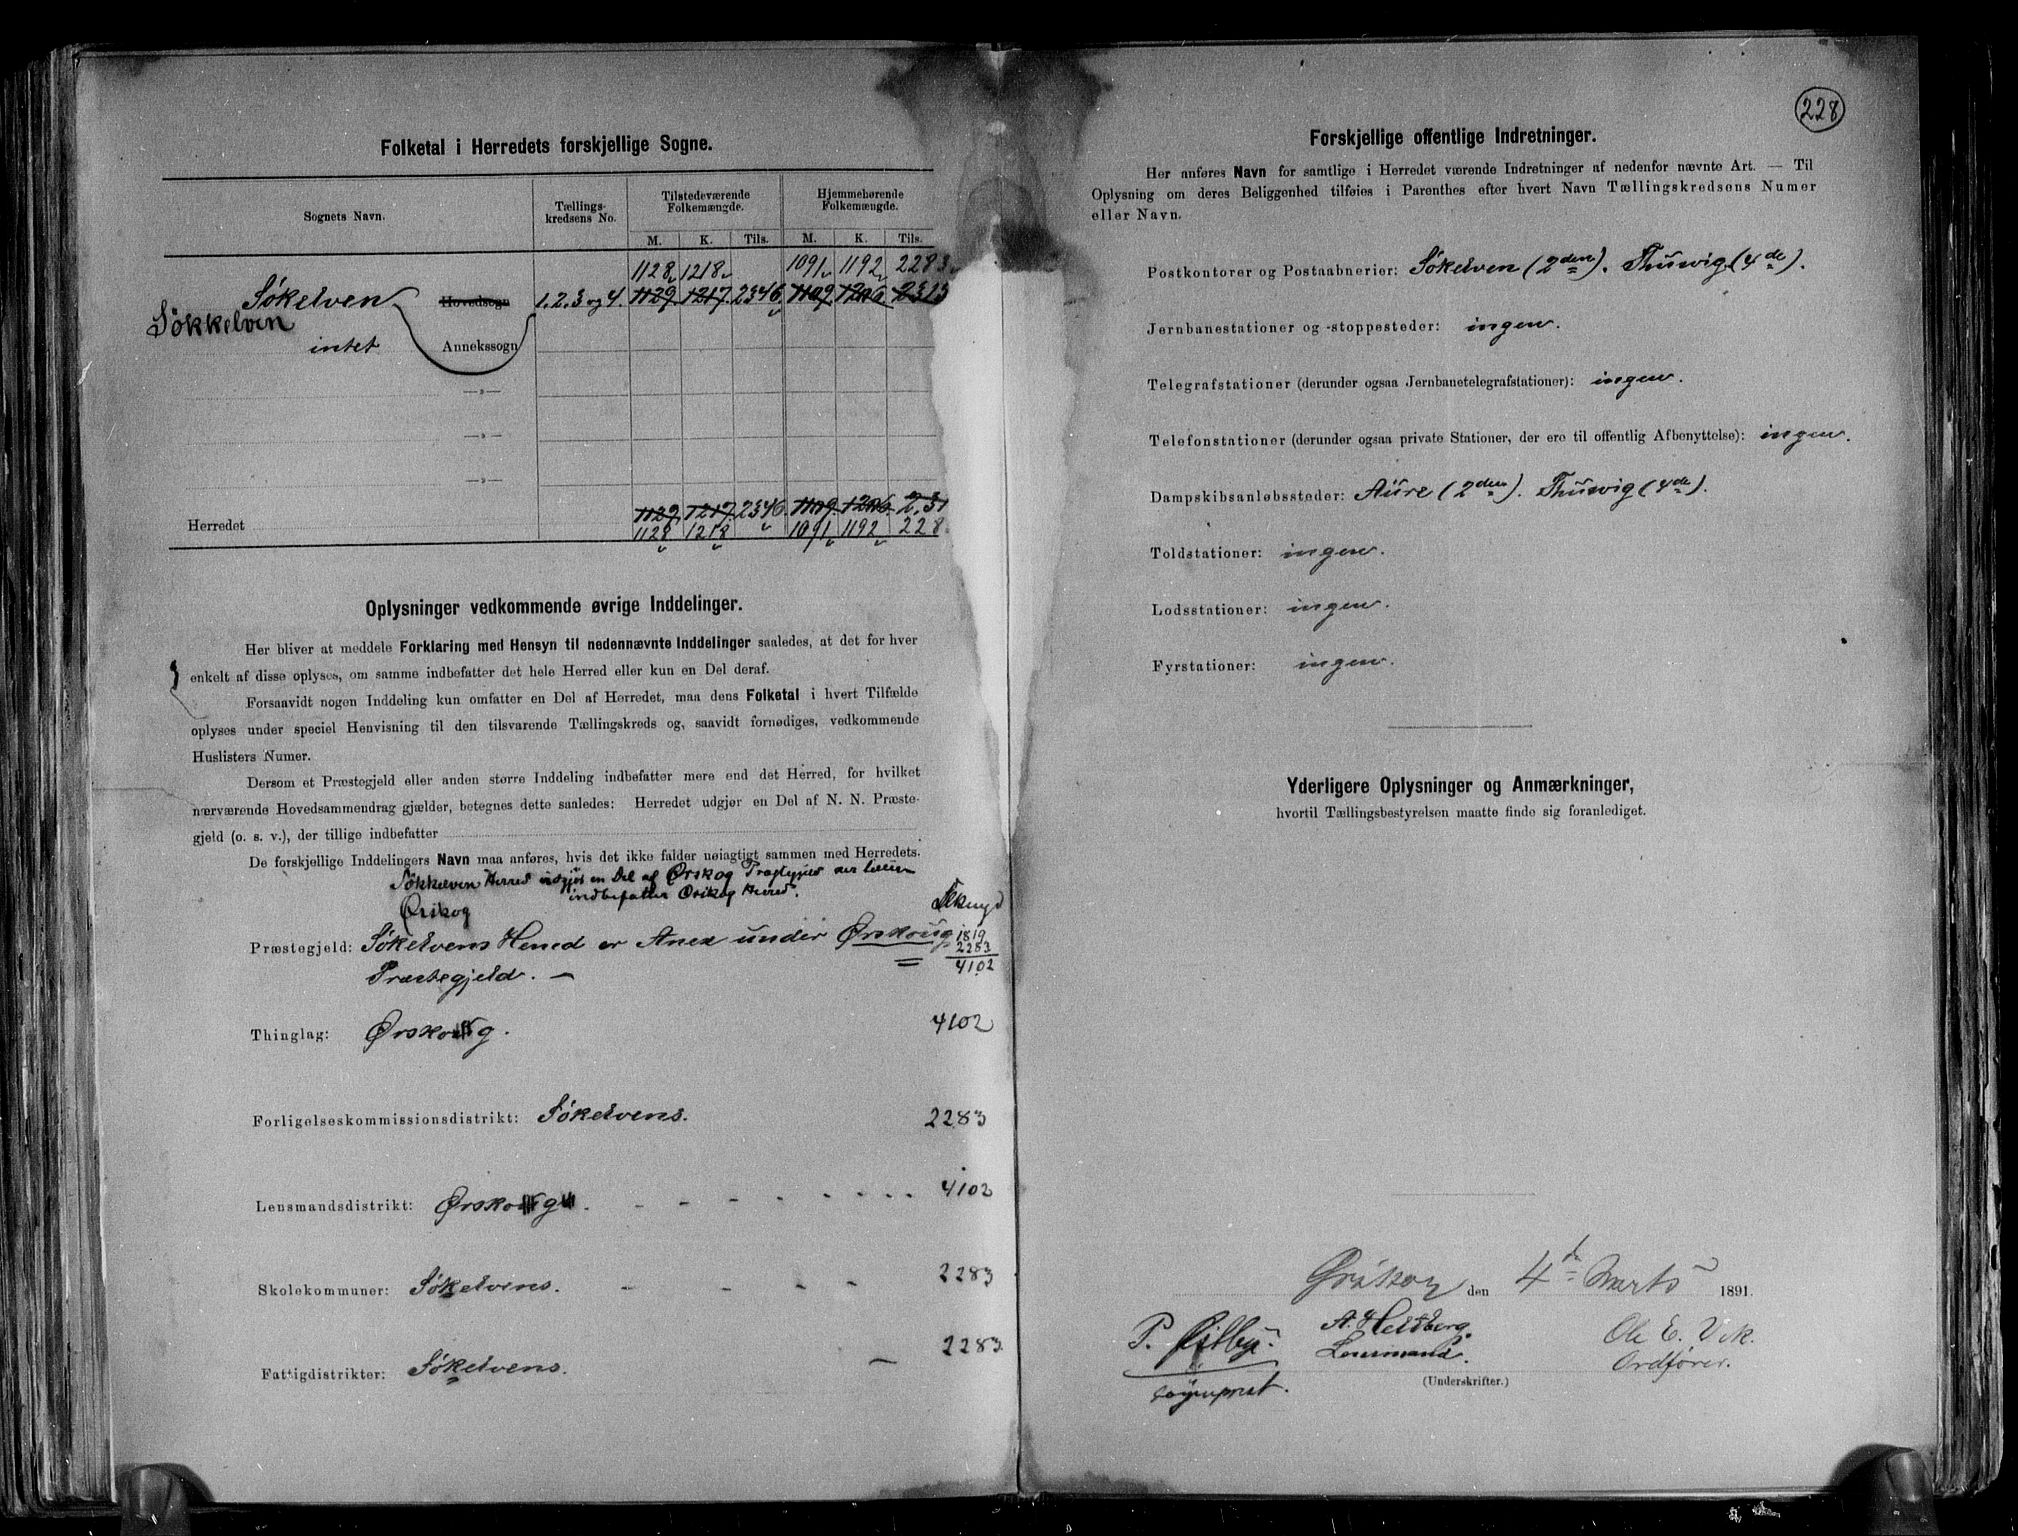 Folketal i Herredets forskjellige Sogne.
Sognets Navn.
Tællings-
kredsens No.
Tilstedeværende
Folkemængde.
Hjemmehørende
Folkemængde.
M. K. Tils. M. K. Tils.
1128 1218 1091 1192 2283
Søkelven Hovedsogn 1. 2. 3 og 4. 1129. 1217. 2346. 1109. 1206. 2313
Søkkelven
intet Annekssogn
—„—
—„—
—„—
1129. 1217. 2346. 1109. 1206. 2.31
Herredet
1128 1218 1091 1192 228
Oplysninger vedkommende øvrige Inddelinger.
Her bliver at meddele Forklaring med Hensyn til nedennævnte Inddelinger saaledes, at det for hver
enkelt af disse oplyses, om samme indbefatter det hele Herred eller kun en Del deraf.
Forsaavidt nogen Inddeling kun omfatter en Del af Herredet, maa dens Folketal i hvert Tilfælde
oplyses under speciel Henvisning til den tilsvarende Tællingskreds og, saavidt fornødiges, vedkommende
Huslisters Numer.
Dersom et Præstegjeld eller anden større Inddeling indbefatter mere end det Herred, for hvilket
nærværende Hovedsammendrag gjælder, betegnes dette saaledes: Herredet udgjør en Del af N. N. Præste-
gjeld (o. s. v.), der tillige indbefatter
De forskjellige Inddelingers Navn maa anføres, hvis det ikke falder nøiagtigt sammen med Herredets.
Søkkelven Herred udgjør en Del af Ørskog Præstegjeld der tillige
indbefatter Ørskog Herred.
Ørskog
Præstegjeld: Søkelvens Herred er Anex under Ørskoug 1819
2283
Præstegjeld. — 4102
Thinglag: Ørskoug. 4102
Forligelseskommissionsdistrikt: Søkelvens. 2283
Lensmandsdistrikt: Ørskoug. 4102
Skolekommuner: Søkelvens. 2283
Fattigdistrikter: Søkelvens. 2283
228
Forskjellige offentlige Indretninger.
Her anføres Navn for samtlige i Herredet værende Indretninger af nedenfor nævnte Art. — Til
Oplysning om deres Beliggenhed tilføies i Parenthes efter hvert Navn Tællingskredsens Numer
eller Navn.
Postkontorer og Postaabnerier: Søkelven (2den). Thuvig (4de).
Jernbanestationer og -stoppesteder: ingen.
Telegrafstationer (derunder ogsaa Jernbanetelegrafstationer): ingen.
Telefonstationer (derunder ogsaa private Stationer, der ere til offentlig Afbenyttelse): ingen.
Dampskibsanløbssteder: Aure (2den). Thuvig (4de).
Toldstationer: ingen.
Lodsstationer: ingen.
Fyrstationer: ingen.
Yderligere Oplysninger og Anmærkninger,
hvortil Tællingsbestyrelsen maatte finde sig foranlediget.
Ørskog den 4de Marts 1891.
P. A. Heltberg. Ole E. Vik.
Lensmand. Ordfører.
(Underskrifter.)
sogneprest.